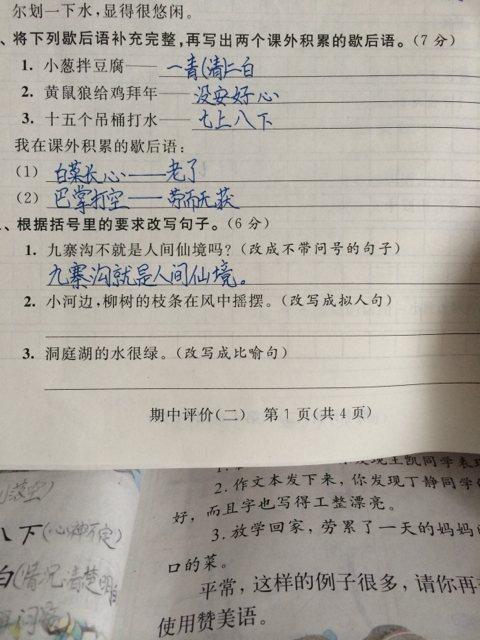 尔划一下水,显得很悠闲。
、将下列歇后语补充完整,再写出两个课外积累的歇后语。(7 分)
1. 小葱拌豆腐—— 一青(清)二白
2. 黄鼠狼给鸡拜年—— 没安好心
3. 十五个吊桶打水—— 七上八下
我在课外积累的歇后语:
(1) 白菜长心——老了
(2) 巴掌打空——劳而无获
、根据括号里的要求改写句子。(6 分)
1. 九寨沟不就是人间仙境吗?(改成不带问号的句子)
九寨沟就是人间仙境。
2. 小河边,柳树的枝条在风中摇摆。(改写成拟人句)
3. 洞庭湖的水很绿。(改写成比喻句)
期中评价(二) 第 1 页(共 4 页)
发现王凯同学表现
2. 作文本发下来,你发现丁静同学的
好,而且字也写得工整漂亮。
3. 放学回家,劳累了一天的妈妈
口的菜。
平常,这样的例子很多,请你再
使用赞美语。
八下(心神不定)
白(情况清楚明白